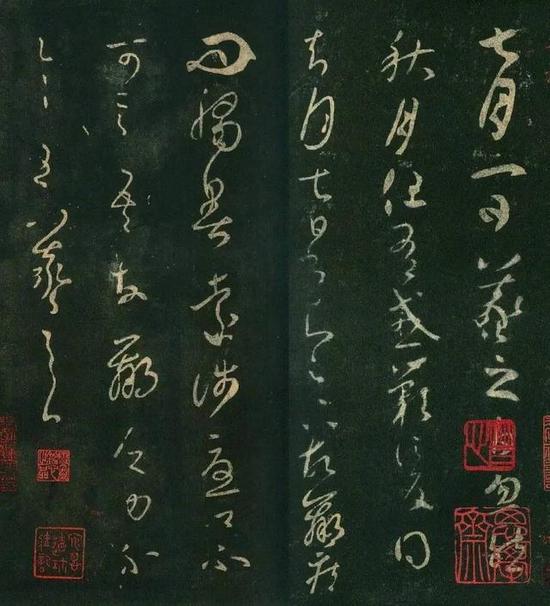 七月一日羲之白忽然
秋月但有感歎信反得
去月七日書知足下故羸疾
問觸暑遠涉憂卿不
可言吾故羸乏力不
一一王羲之白